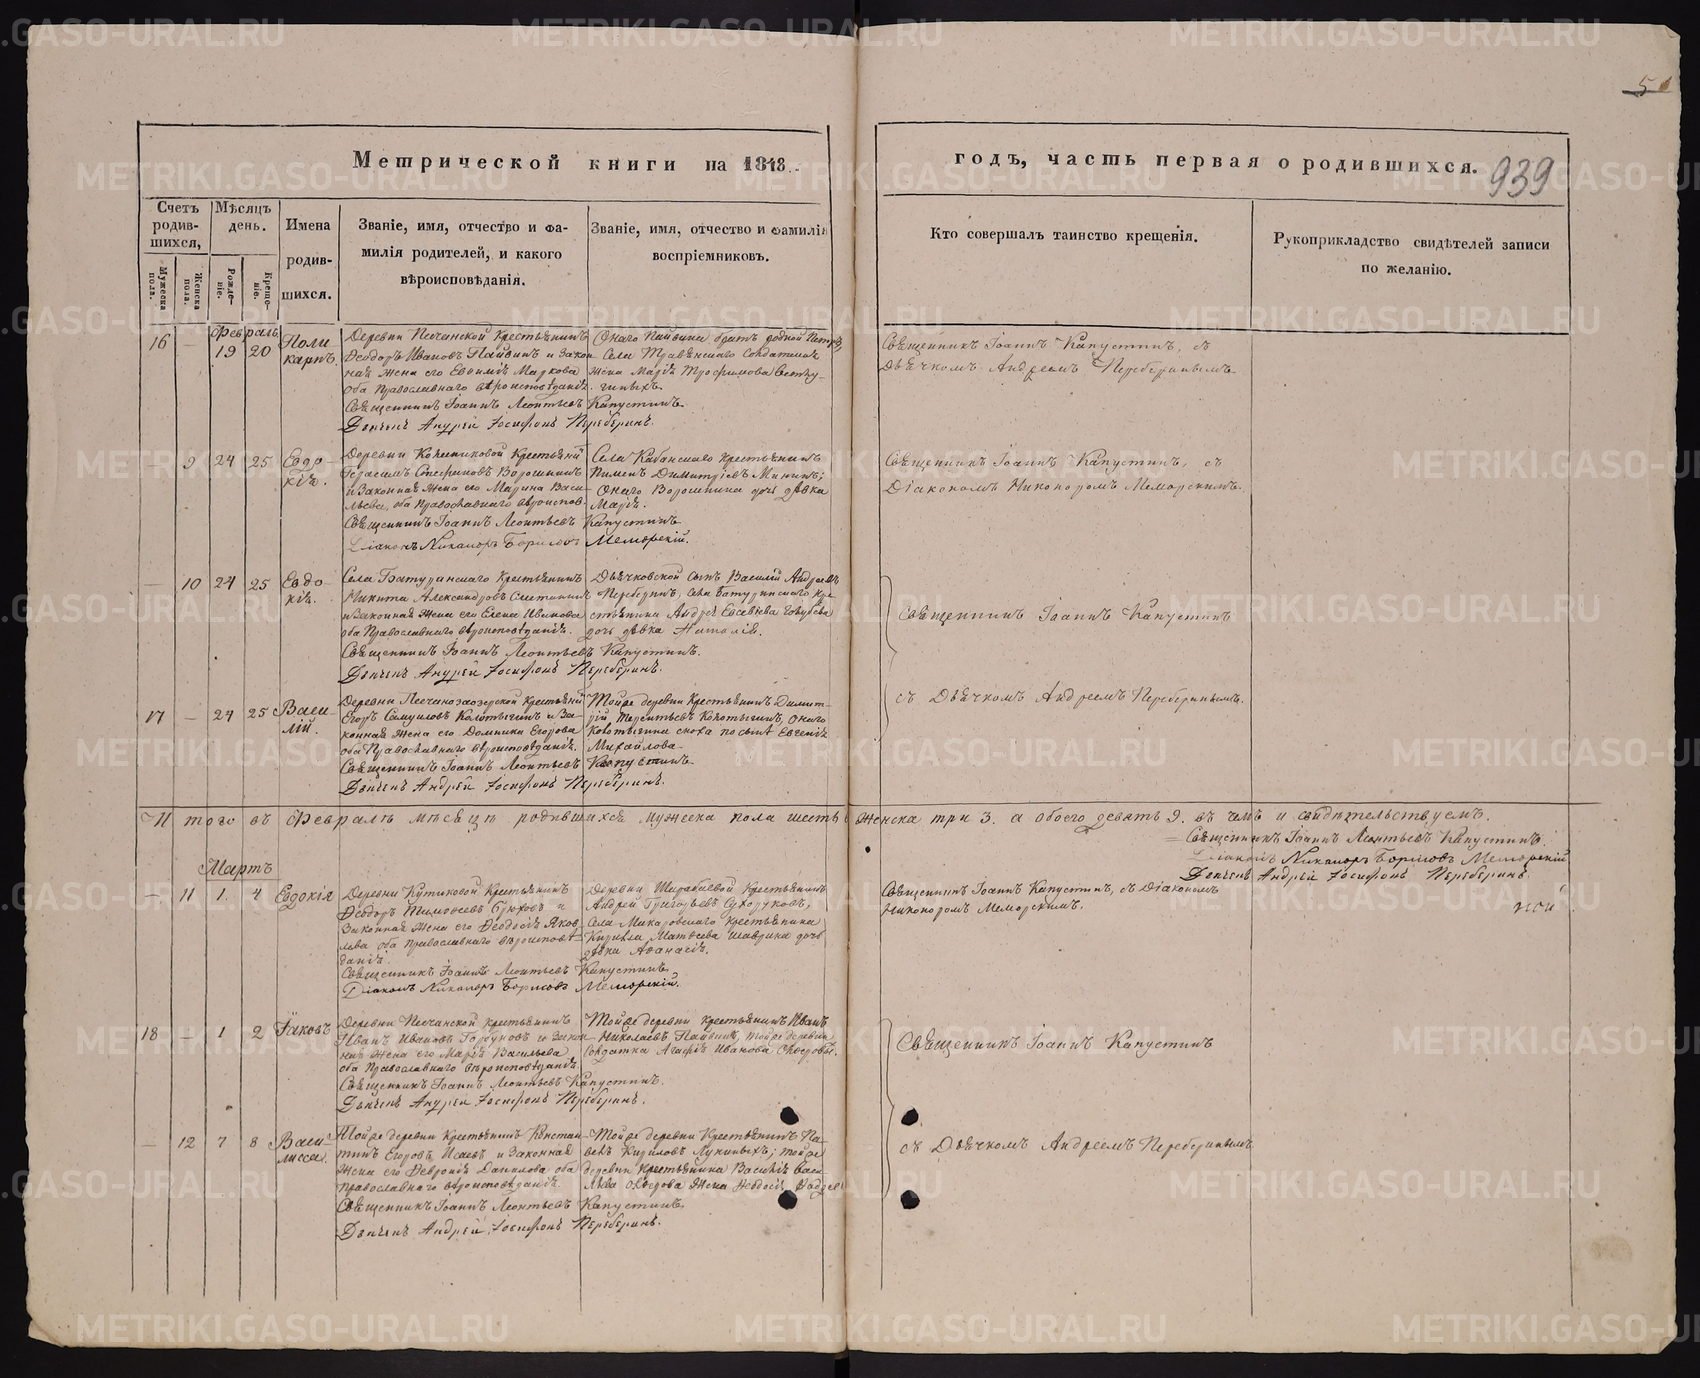 5
Метрической книги на 1848.
годъ, часть первая о родившихся. 939
Счетъ родив-шихся,
Мужеска пола.
Женска пола.
Мѣсяцъ день.
Рожде-ніе.
Креще-ніе.
Имена родив-шихся.
Званіе, имя, отчество и фа-
милія родителей, и какого
вѣроисповѣданія.
Званіе, имя, отчество и фамилія
воспріемниковъ.
Кто совершалъ таинство крещенія.
Рукоприкладство свидѣтелей записи
по желанію.
Февраль
16 — 19 20 Поли
карпъ.
Деревни Песчанской Крестьянинъ
Ѳеодоръ Ивановъ Пайвинъ и закон
ная жена его Евѳимія Маркова
оба Православнаго вѣроисповѣданія.
Онаго Пайвина братъ родной Петръ,
Села Травянскаго Солдатская
жена Марія Трофимова
Священникъ Іоаннъ Леонтьевъ Капустинъ.
Дьячекъ Андрей Іосифовъ Переберинъ.
Священникъ Іоаннъ Капустинъ, съ
Дьячкомъ Андреемъ Переберинымъ
— 9 24 25 Евдо-
кія.
Деревни Колесниковой Крестьянинъ
Герасимъ Стефановъ Ворошнинъ
и Законная жена его Марина Васи-
льева, оба Православнаго вѣроиспов.
Села Кабанскаго Крестьянинъ
Пименъ Димитріевъ Мининъ;
Онаго Ворошнина дочь дѣвка
Марія.
Священникъ Іоаннъ Леонтьевъ Капустинъ
Діаконъ Никаноръ Борисовъ Меморскій.
Священникъ Іоаннъ Капустинъ, съ
Діакономъ Никаноромъ Меморскимъ.
— 10 24 25 Евдо-
кія.
Села Батуринскаго Крестьянинъ
Никита Александровъ Сметанинъ
и Законная жена его Елена Иванова
оба Православнаго вѣроисповѣданія.
Дьячковской сынъ Василій Андреевъ
Переберинъ, Села Батуринскаго Кре
стьянина Андрея Евсевіева Голубева
дочь дѣвка Наталія.
Священникъ Іоаннъ Леонтьевъ Капустинъ.
Дьячекъ Андрей Іосифовъ Переберинъ.
Священникъ Іоаннъ Капустинъ
17 — 24 25 Васи-
лій.
Деревни Песчаноозерской Крестьянинъ
Егоръ Самуиловъ Колотыгинъ и За-
конная жена его Домника Егорова
оба Православнаго вѣроисповѣданія.
Тойже деревни Крестьянинъ Димит-
рій Терентьевъ Колотыгинъ, онаго
Колотыгина сноха по сынѣ Евгенія
Михайлова.
Священникъ Іоаннъ Леонтьевъ Капустинъ
Дьячекъ Андрей Іосифовъ Переберинъ.
съ Дьячкомъ Андреемъ Переберинымъ.
Итого въ Февралѣ мѣсяцѣ родившихся мужеска пола шесть женска три 3. а обоего девять 9. въ чемъ и свидѣтельствуемъ.
Священникъ Іоаннъ Леонтьевъ Капустинъ.
Діаконъ Никаноръ Борисовъ Меморскій
Дьячекъ Андрей Іосифовъ Переберинъ.
Мартъ
— 11 1 4 Евдокія
Деревни Кутиковой Крестьянинъ
Ѳеодоръ Тимоѳеевъ и
Законная жена его Ѳеодосія Яков
лева оба православнаго вѣроисповѣ-
данія.
Деревни Шарабаевой Крестьянинъ
Андрей Григорьевъ Сухоруковъ,
Села Макаровскаго крестьянина
Кирилла Матвеева Шаврина дочь
дѣвка Аѳанасія.
Священникъ Іоаннъ Леонтьевъ Капустинъ,
Діаконъ Никаноръ Борисовъ Меморскій.
Священникъ Іоаннъ Капустинъ, съ Діакономъ
Никаноромъ Меморскимъ.
18 — 1 2 Іаковъ
Деревни Песчанской крестьянинъ
Иванъ Ивановъ Горбуновъ и закон
ная жена его Марья Васильева
оба Православнаго вѣроисповѣданія.
Тойже деревни крестьянинъ Иванъ
Николаевъ Пайвинъ, тойже деревни
солдатка Агафія Иванова
Священникъ Іоаннъ Леонтьевъ Капустинъ.
Дьячекъ Андрей Іосифовъ Переберинъ.
Священникъ Іоаннъ Капустинъ
— 12 7 8 Васи-
лисса.
Тойже деревни Крестьянинъ Констан-
тинъ Егоровъ Исаевъ и Законная
жена его Февронія Данилова оба
православнаго вѣроисповѣданія.
Тойже деревни Крестьянинъ Па-
велъ Кириловъ Лукиныхъ; тойже
деревни Крестьянина Василія Васи-
льева жена Ѳеодосія
Священникъ Іоаннъ Леонтьевъ Капустинъ,
Дьячекъ Андрей Іосифовъ Переберинъ.
съ Дьячкомъ Андреемъ Переберинымъ
METRIKI.GASO-URAL.RU